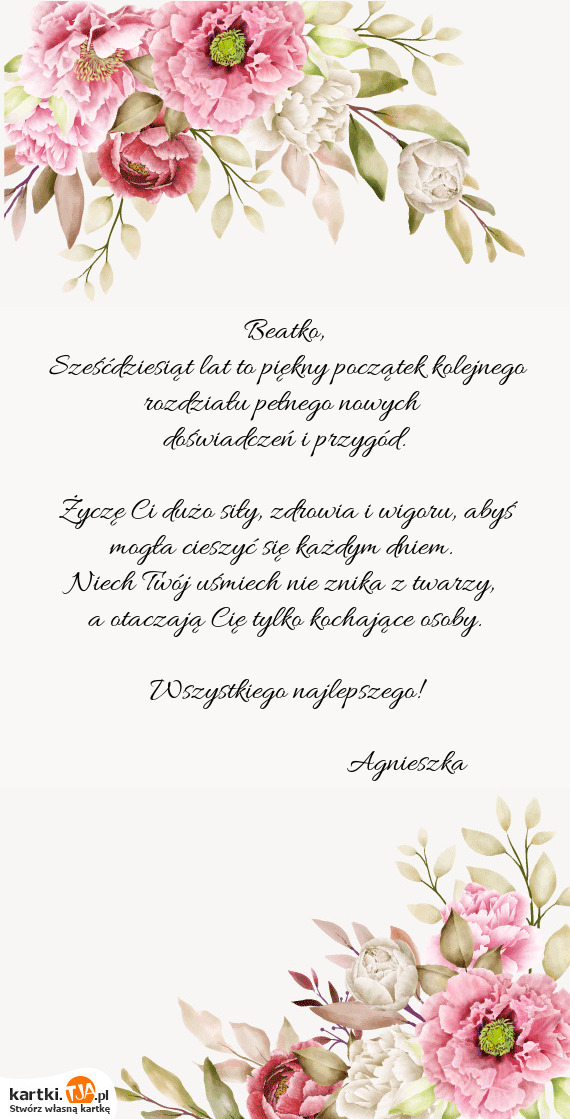 Beatko,
Sześćdziesiąt lat to piękny początek kolejnego
rozdziału pełnego nowych
doświadczeń i przygód.
Życzę Ci dużo siły, zdrowia i wigoru, abyś
mogła cieszyć się każdym dniem.
Niech Twój uśmiech nie znika z twarzy,
a otaczają Cię tylko kochające osoby.
Wszystkiego najlepszego!
Agnieszka
kartki.TJA.pl
Stwórz własną kartkę